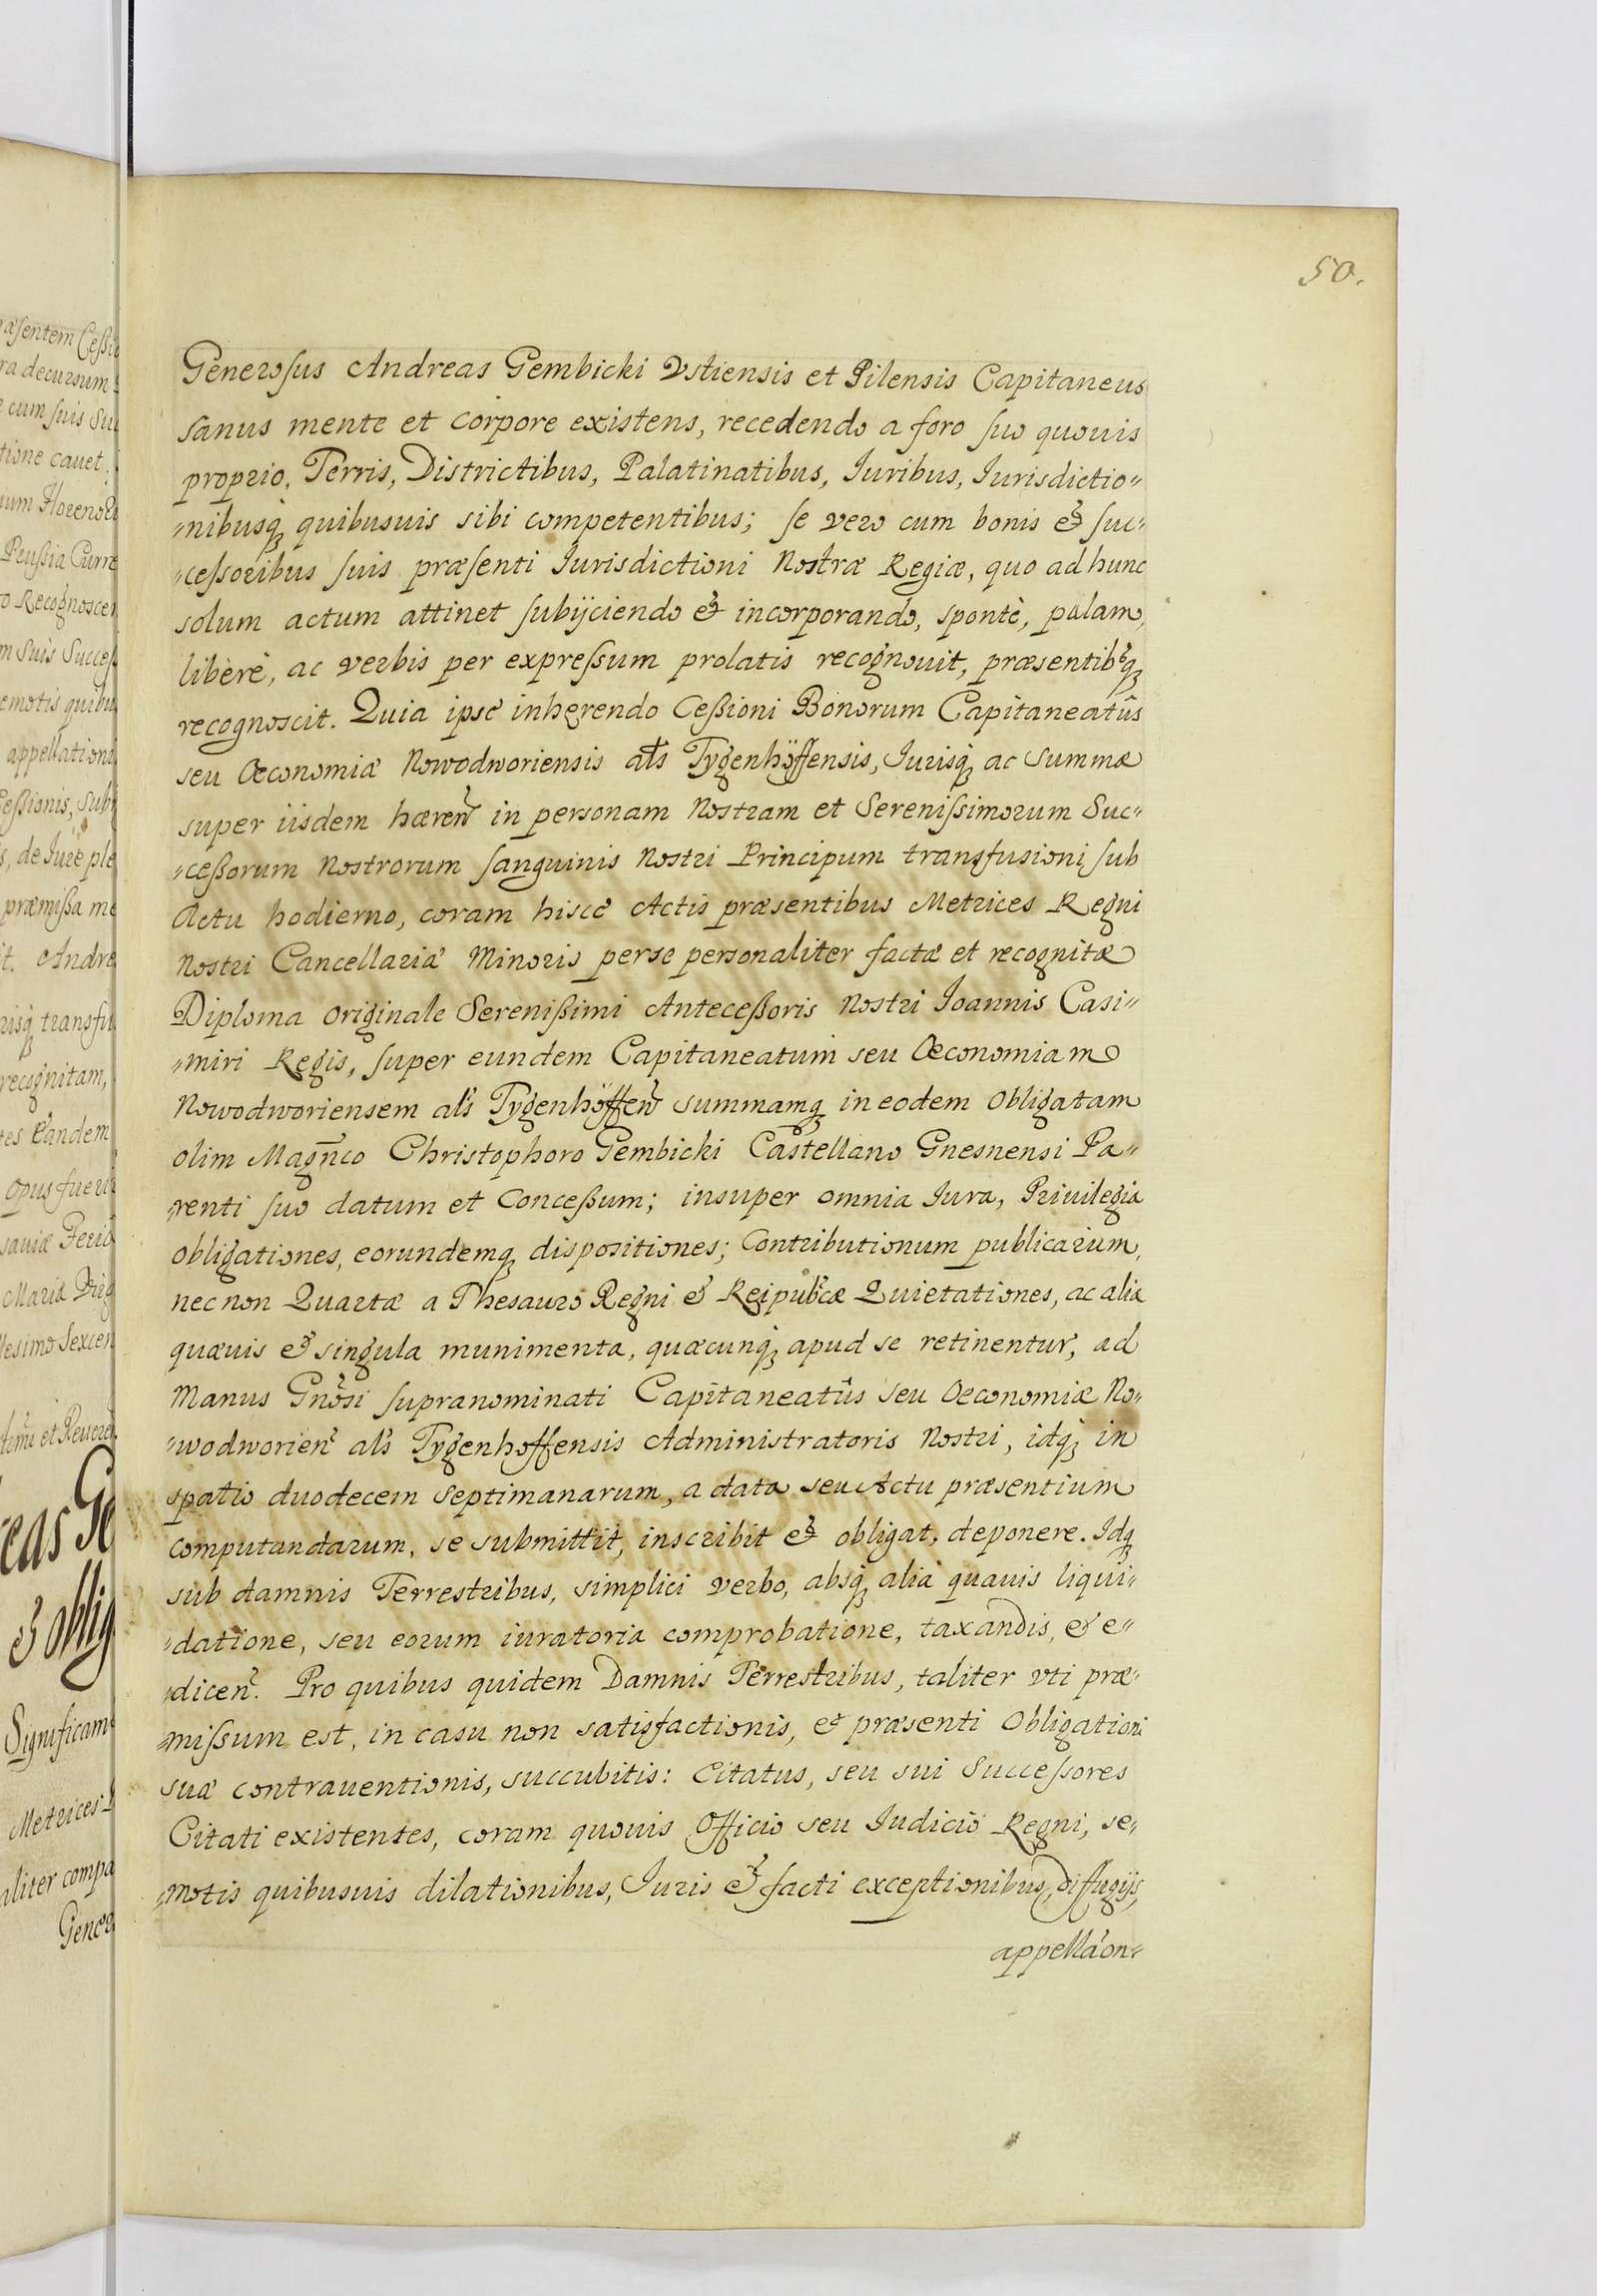 50.
Generosus Andreas Gembicki Vstiensis et Pilensis Capitaneus
sanus mente et corpore existens, recedendo a foro suo quouis
proprio, Terris, Districtibus, Palatinatibus, Iuribus, Iurisdictio„
„nibusq quibusuis sibi competentibus; se vero cum bonis & suc„
„cessoribus suis præsenti Iurisdictioni Nostræ Regiæ, quo ad hunc
solum actum attinet subijciendo & incorporando, spontè, palam,
liberè, ac verbis per expressum prolatis recognouit, præsentibq
recognoscit. Quia ipse inhęrendo Ceßioni Bonorum Capitaneatûs
seu Œconomiæ Nowodworiensis als Tygenhöffensis, Iurisq ac Summæ
super iisdem hæren in personam Nostram et Serenissimorum Suc„
„ceßorum Nostrorum sanguinis Nostri Principum transfusioni, sub
Actu hodierno, coram hisce Actis præsentibus Metrices Regni
Nostri Cancellariæ Minoris per se personaliter factæ et recognitæ
Diploma originale Serenißimi Anteceßoris Nostri Ioannis Casi„
„miri Regis, super eundem Capitaneatum seu Œconomiam
Nowodworiensem als Tygenhöffen summamq in eodem obligatam
olim Magnco Christophoro Gembicki Castellano Gnesnensi Pa„
„renti suo datum et Conceßum; insuper omnia Iura, Priuilegia
obligationes, eorundemq dispositiones; Contributionum publicarum,
nec non Quartæ a Thesauro Regni & Reipubcæ Quietationes, ac alia
quæuis & singula munimenta, quæcunq apud se retinentur, ad
Manus Gnosi supranominati Capitaneatûs seu Oeconomiæ No„
„wodworien als Tygenhoffensis Administratoris Nostri, idq in
spatio duodecem septimanarum, a data seu Actu præsentium
computandarum, se submittit, inscribit & obligat, deponere. Idq
sub damnis Terrestribus, simplici verbo, absq alia quauis liqui„
„datione, seu eorum iuratoria comprobatione, taxandis, & e„
„dicen. Pro quibus quidem Damnis Terrestribus, taliter vti præ„
„missum est, in casu non satisfactionis, & præsenti Obligationi
suæ contrauentionis, succubitis: Citatus, seu sui Successores
Citati existentes, coram quouis Officio seu Iudicio Regni, se„
„motis quibusuis dilationibus, Iuris & facti exceptionibus, diffugijs,
appellaon„